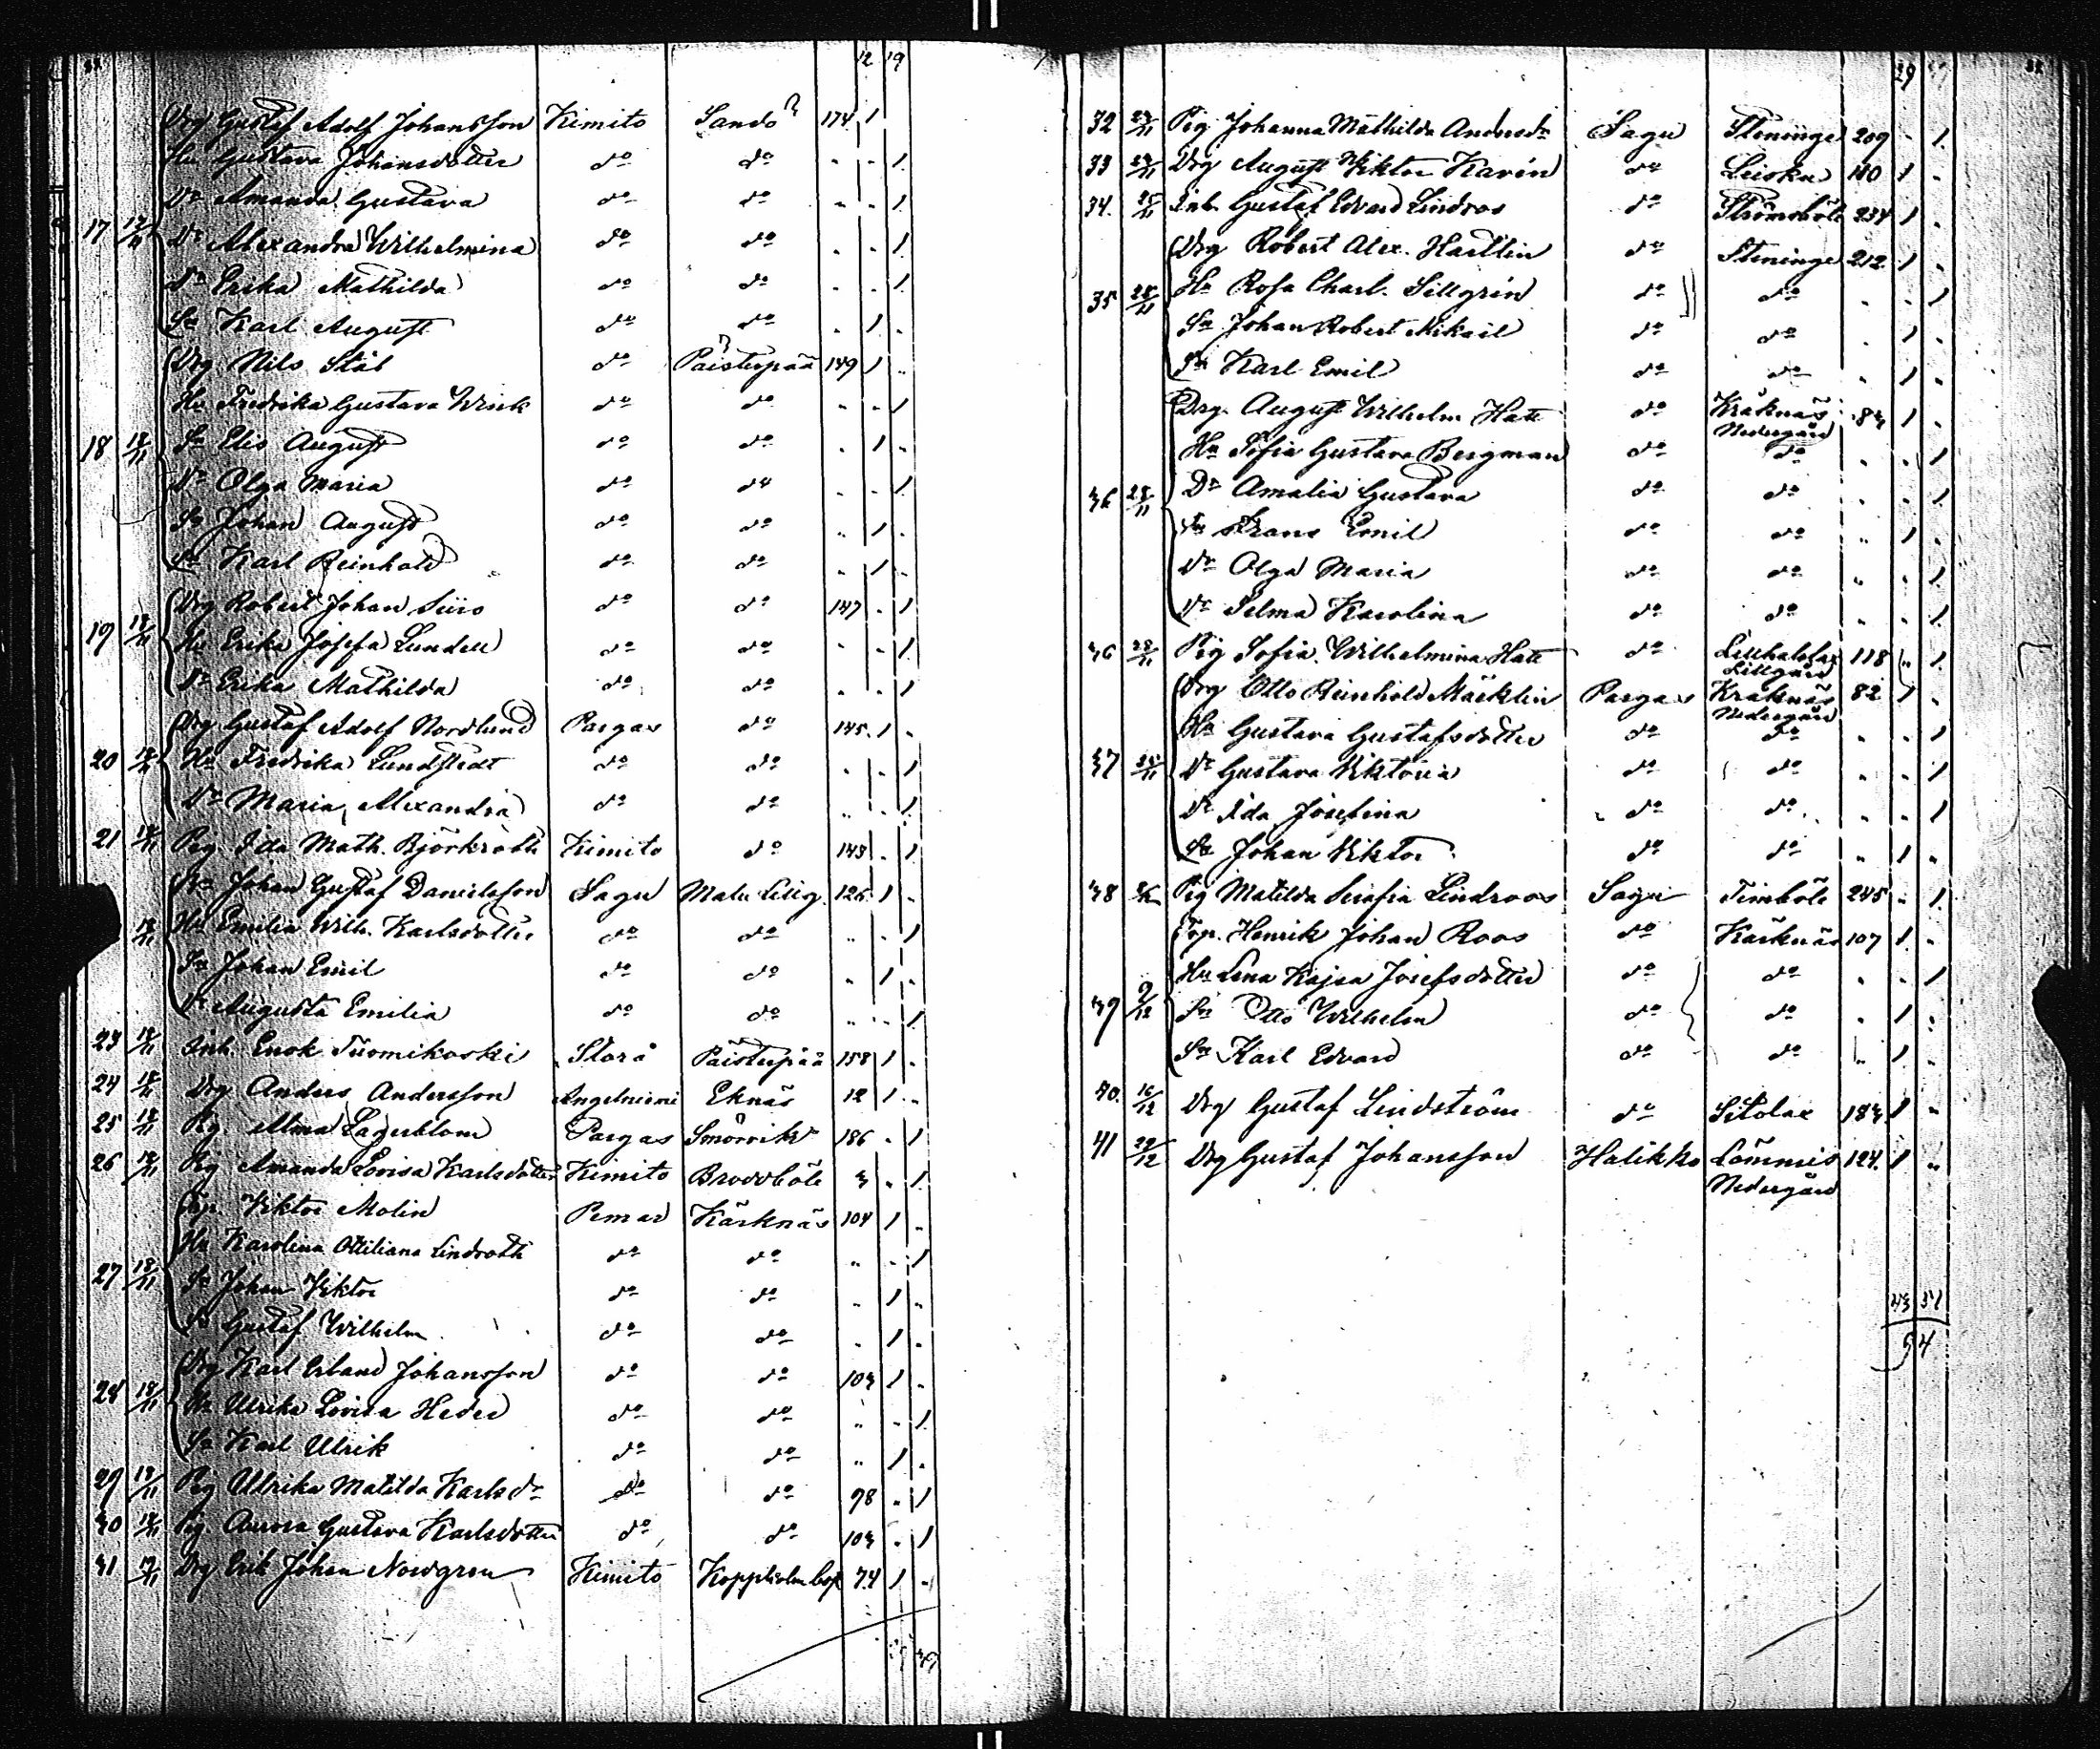 12 19
Drg Gustaf Adolf Johansson Kimito Sandö 174 1
Hu Gustava Johansdotter do do " " 1
Dr Amanda Gustava do do " " 1
17 Dr Alexandra Wilhelmina do do " " 1
Dr Erika Mathilda do do " " 1
Sn Karl August do do " 1 "
Drg Nils Stål do Paistupää 149 1 "
Hu Fredrika Gustava Wink do do " " 1
18 18/11 Sn Elis August do do " 1 "
Dr Olga Maria do do " " 1
Sn Johan August do do " 1 "
Sn Karl Reinhold do do " 1 "
Drg Robert Johan Siiro do do 147 " 1
19 18/11 Hu Erika Josefa Lundell do do " " 1
Dr Erika Mathilda do do " " 1
Drg Gustaf Adolf Nordlund Pargas do 145 1 "
20 18/11 Hu Fredrika Lundstedt do do " " 1
Dr Maria Alexandra do do " " 1
21 18/11 Pig Ida Math. Björkroth Kimito do 145 " 1
Drg Johan Gustaf Danielsson Sagu Malu Lillg. 126 1 "
18/11 Hu Emilia Wilh. Karlsdotter do do " " 1
Sn Johan Emil do do " 1 "
Dr Augusta Emilia do do " " 1
23 18/11 Inh. Enok Tuomikoski Storå Paistupää 158 1 "
24 18/11 Drg Anders Andersson Angelniemi Eknäs 12 1 "
25 18/11 Pig. Alma Lagerblom Pargas Smörvik 186 " 1
26 18/11 Pig Amanda Lovisa Karlsdotter Kimito Broddböle 3 " 1
Trp. Viktor Molin Pemar Kärknäs 104 1 "
Hu Karolina Ottiliana Lindroth do do " " 1
27 18/11 Sn Johan Viktor do do " 1 "
Sn Gustaf Wilhelm do do " 1 "
Drg Karl Erland Johansson do do 103 1 "
28 18/11 Hu Ulrika Lovisa Heder do do " " 1
Sn Karl Ulrik do do " 1 "
29 18/11 Pig Ulrika Matilda Karlsdr do do 98 " 1
30 18/11 Pig Aurora Gustava Karlsdotter do do 103 " 1
31 Drg Erik Johan Nordgren Kimito Koppholm 74 1 "
29
32 Pig Johanna Mathilda Andersdr Sagu Steninge 209 " 1
33 Drg August Viktor Karén do Leiska 110 1 "
34. Inh. Gustaf Edvard Lindros do Strömsböle 234 1 "
Drg Robert Alex. Hartlin do Steninge 212 1 "
35 28/11 Hu Rosa Charl. Sillgrén do do " " 1
Sn Johan Robert Mikael do do " 1 "
Sn Karl Emil do do " 1 "
Drg. August Wilhelm Hate do Kråknäs Nedergård 83 1 "
Hu Sofia Gustava Bergman do do " " 1
36 28/11 Dr Amalia Gustava do do " " 1
Sn Frans Emil do do " 1 "
Dr Olga Maria do do " " 1
Dr Selma Karolina do do " " 1
36 28/11 Pig Sofia Wilhelmina Hate do Lillhalslax Lillgård 118 " 1
Drg Otto Reinhold Mäcklin Pargas Kråknäs Nedergård 82 1 "
Hu Gustava Gustafsdotter do do " " 1
37 28/11 Dr Gustava Viktoria do do " " 1
Dr Ida Josefina do do " " 1
Sn Johan Viktor do do " 1 "
38 Pig Matilda Serafia Lindroos Sagu Timböle 245 " 1
Torp. Henrik Johan Roos do Kärknäs 107 1 "
Hu Lena Kajsa Josefsdotter do do " " 1
39 9/12 Sn Otto Wilhelm do do " 1 "
Sn Karl Edvard do do " 1 "
40. 16/12 Drg Gustaf Lindström do Sitolax 183 1 "
41 22/12 Drg Gustaf Johansson Halikko Lömmis Nedergård 124 1 "
43 51
94